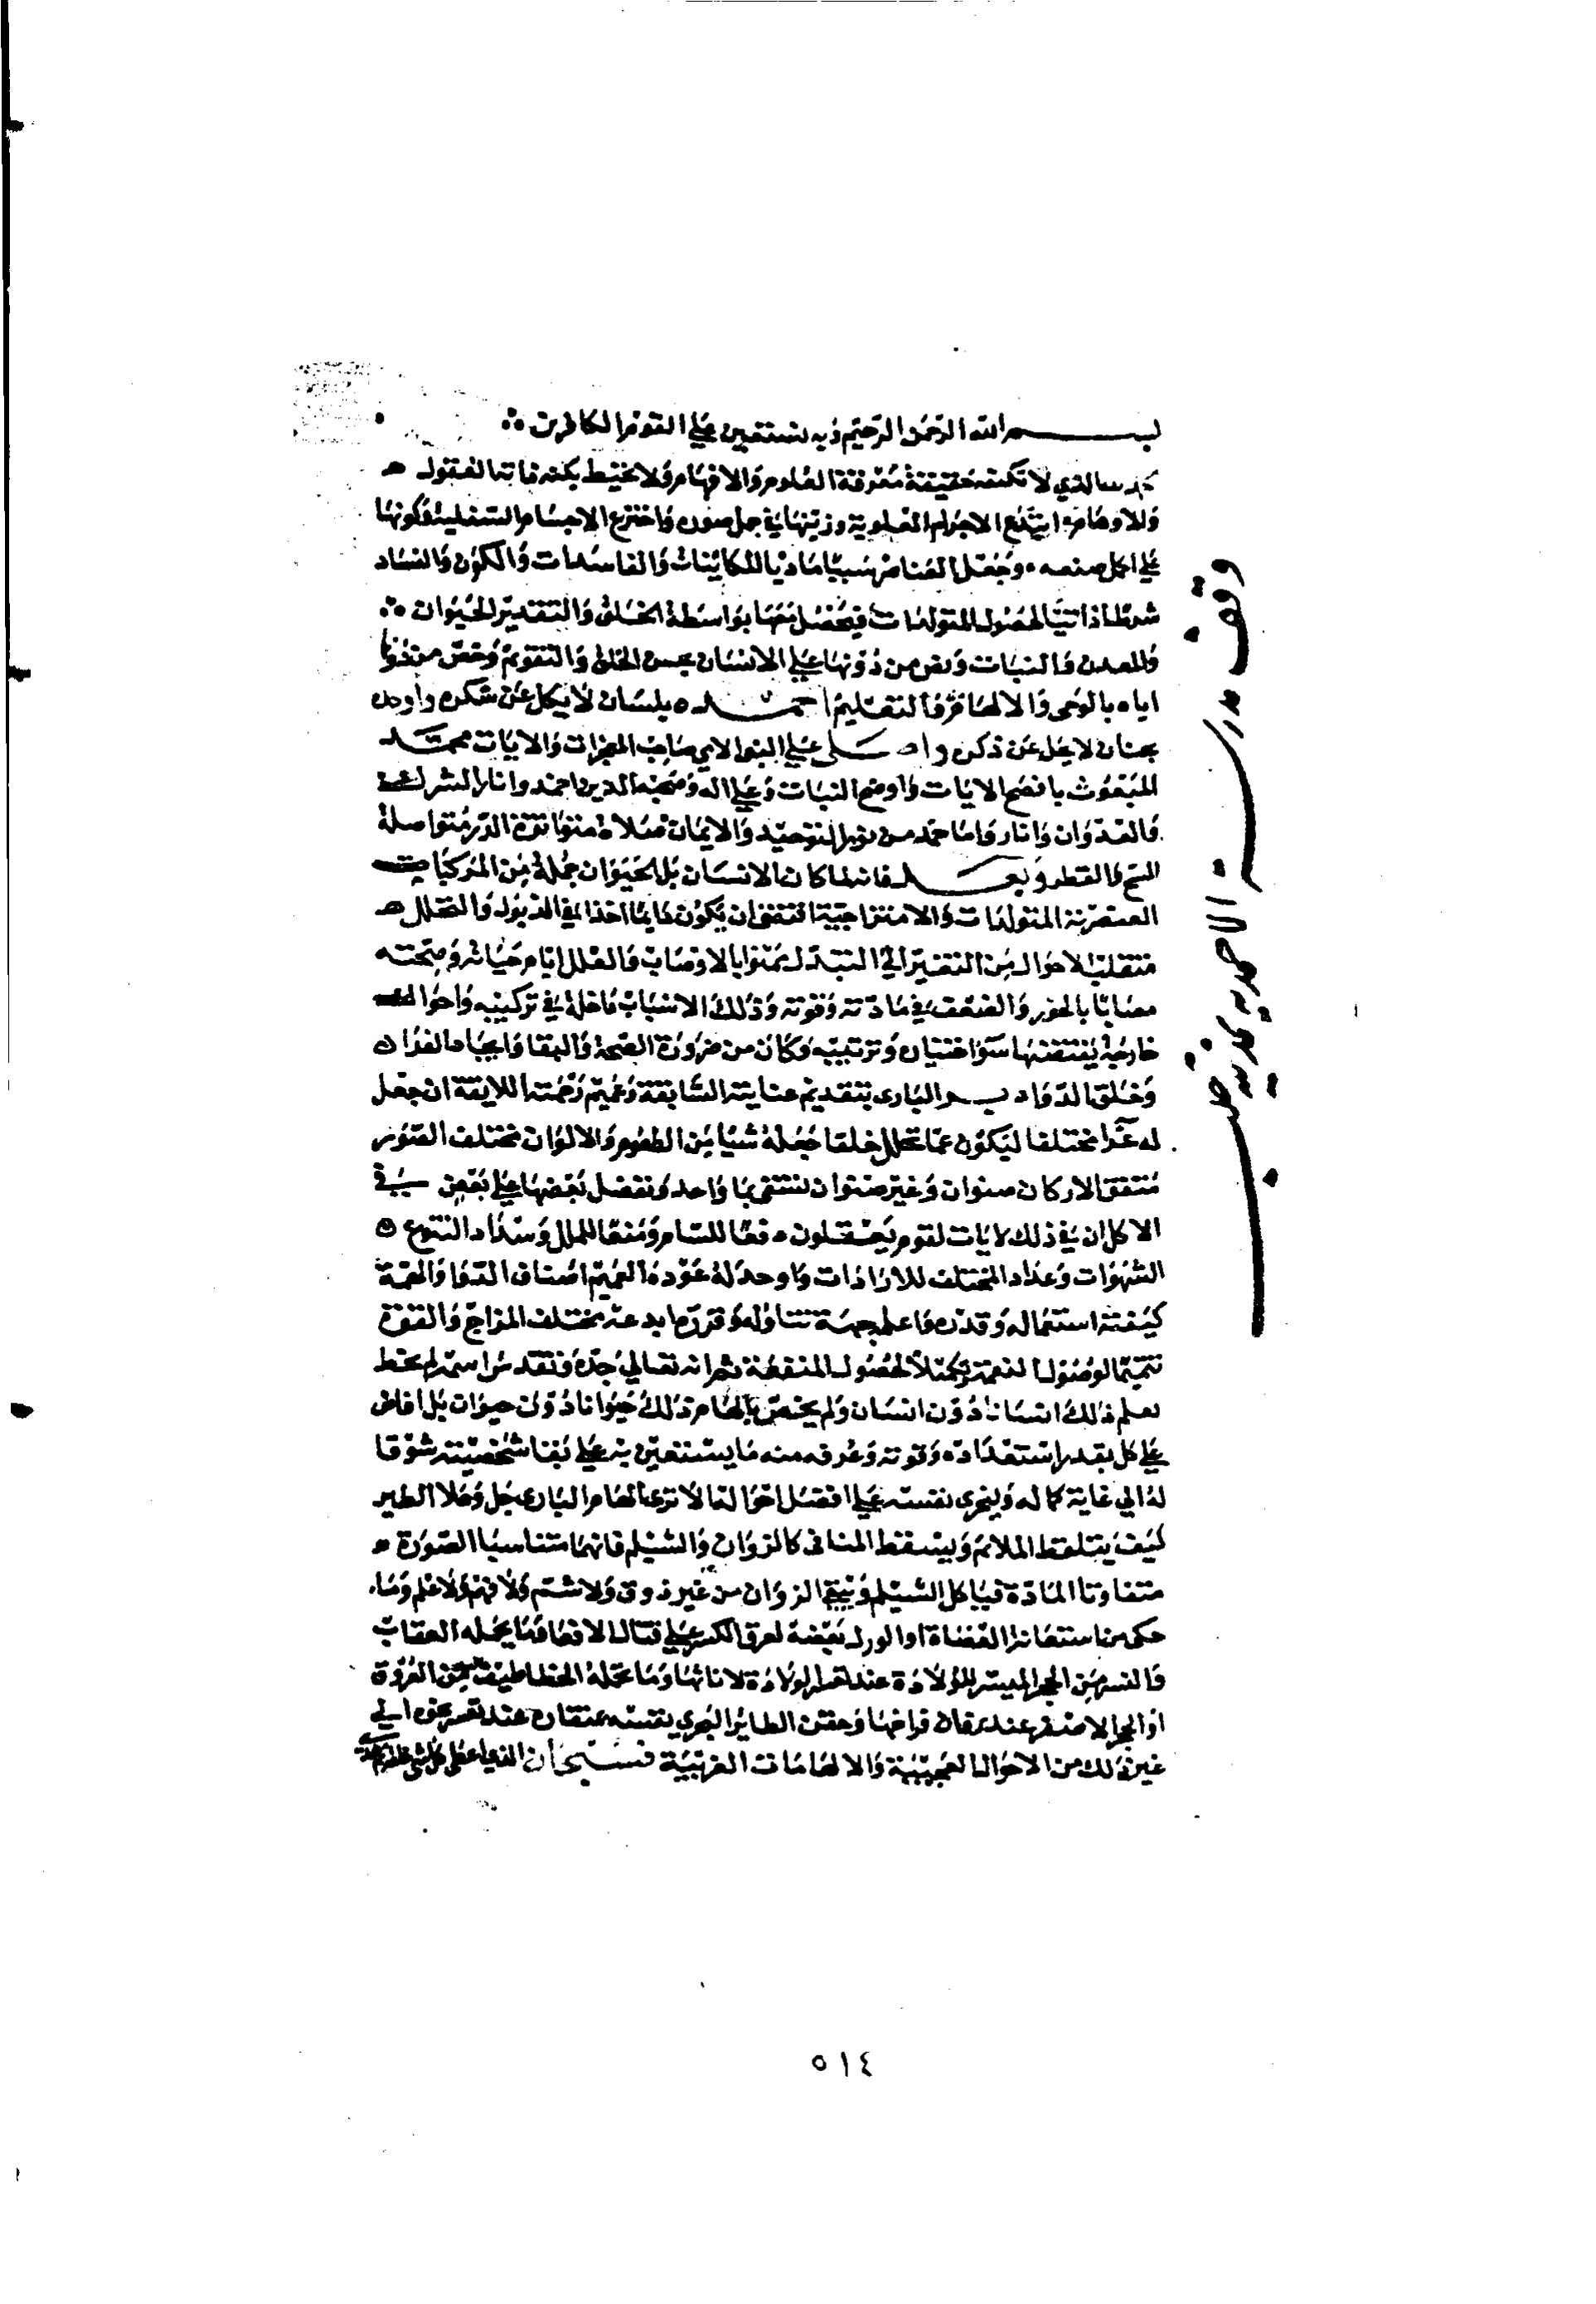 بسم الله الرحمن الرحيم وبه نستعين على القوم الكافرين
الذي لا تكتنه حقيقة معرفة العلوم والافهام ولا تحيط بكنه ذاته العقول
والاوهام ابتدع الاجرام العلوية وزينها في جل صوره واخترع الاجسام السفلية وكونها
على اكمل صنعه وجعل العناصر سببا ماديا للكاينات والفاسدات والكون والفساد
شرطا ذاتيا لحصول المتولدات فيحصل منها بواسطة الخلق والتقدير الحيوان
والمعدن والنبات ونص من دونها على الانسان بحسن الخلق والتقويم وخص من ذونا
اياه بالوحى والالهام والتعليم احمده بلسان لا يكل عن شكره واوحده
بجنان لا يخل عن ذكره واصلى على النبى الامي صاحب المعجزات والايات محمد
المبعوث بافصح الايات واوضح البينات وعلى اله وصحبه الذين اخمدوا نار الشرك
والعدوان وانار واما خمد من نور التوحيد والايمان صلاة متواترة الدر متواصلة
السح والقطر وبعد فانه لما كان الانسان بل الحيوان جملة من المركبات
العنصرية المتولدات والامتزاجية اقتضى ان يكون دايما اخذا في الذبول والتحلل
متقلب الاحوال من التغير الى التبدل ممنوا بالاوصاب والعلل ايام حياته وصحته
مصابا بالخور والضعف في مادته وقوته وذلك الاسباب داخلة في تركيبه واحواله
خارجية يقتضيها سوء اختياره وترتيبه وكان من ضرورة الصحة والبقا وايجاد الغذاء
وخلق الدواء البارى بتقديم عنايته السابقة وعميم رحمته اللايقة ان جعل
له غذا مختلفا ليكون عما تحلل خلفا جعله شيئا من الطعوم والالوان مختلف الصور
متفق الاركان صنوان وغير صنوان تسقى بما واحد ونفضل بعضها على بعض في
الاكل ان في ذلك لايات لقوم يعقلون دفعا للسام ومنعا للملل وسدادا لتنوع
الشهوات وعدادا لمختلف الارادات واوجد له عوده العميم اصناف الدوا والهمه
كيفية استعماله وقدره واعلمه جهة تناوله وقرر ما يدعه مختلف المزاج والقوة
تتميما لوصول النعمة وتكميلا لحصول المنفعة ثم انه تعالى جده وتقدس اسمه لم يخص
بعلم ذلك انسانا دون انسان ولم يختص بالهام ذلك حيوانا دون حيوان بل افاض
على كل بقدر استعداده وقوته وعرفه منه ما يستعين به على بقا شخصيته شوقا
له الى غاية كماله ويجرى نفسه على افضل احوالها الا ترى الهام البارى جل وعلا الطير
كيف يتلقط الملائم ويسقط المنافى كالزوان والشيلم فانهما متناسبا الصورة
متفاوتا المادة فياكل الشيلم ويبقي الزوان من غير ذوق ولا شم ولا فهم ولا علم وما
حكى من استعانة القضاة او الورل بعضه لعرق الكسر على قتال الافعا وما يحمله العقاب
والنسر من الحجر الميسر للولادة عند تعسر الولادة لاناثها وما تحمله الخطاطيف من العروق
او الحجر الاصفر عند يرقان فراخها وحقن الطائر البحري نفسه بمنقاره عند تعسر نجوه الى
غير ذلك من الاحوال العجيبة والالهامات الغريبة فسبحان الذي اعطى كل شى خلقه ثم هدى
وقف مدرسة الاحمدية بمدينة حلب
٥١٤